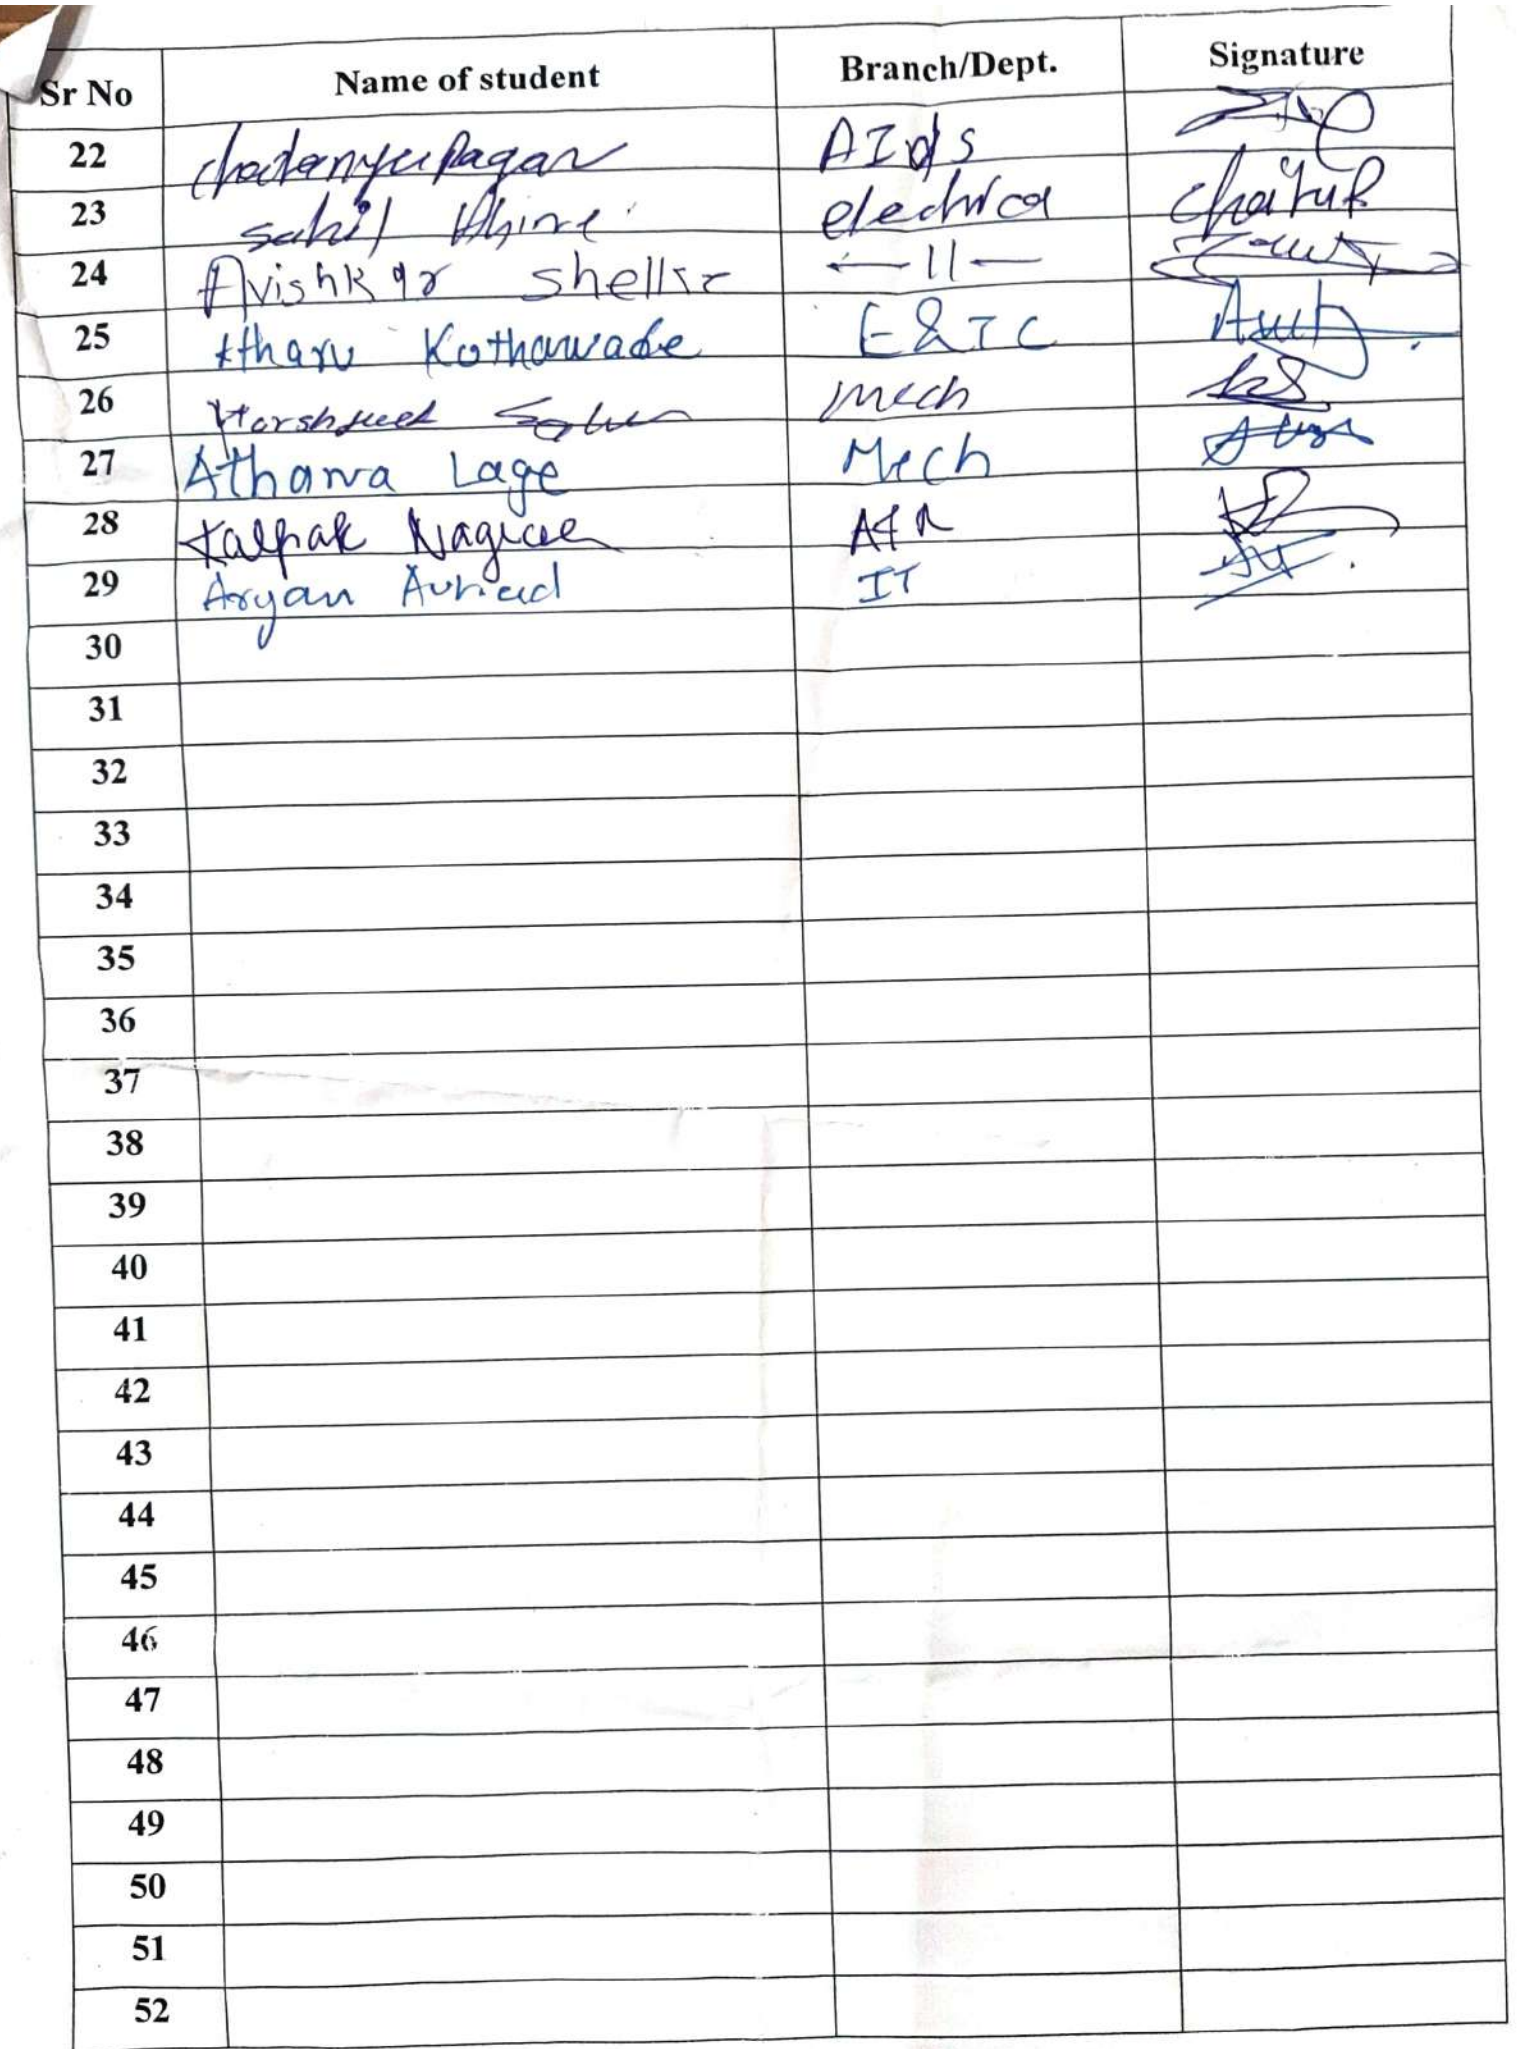 Sr No Name of student Branch/Dept. Signature
22 chaitanya Pagar AIDS
23 sahil Ahire electrical
24 Avishkar shelke —11—
25 Atharv Kothawade E&TC
26 mech
27 Atharva Lage Mech
28 Kalpak A&R
29 Aryan Avhad IT
30
31
32
33
34
35
36
37
38
39
40
41
42
43
44
45
46
47
48
49
50
51
52